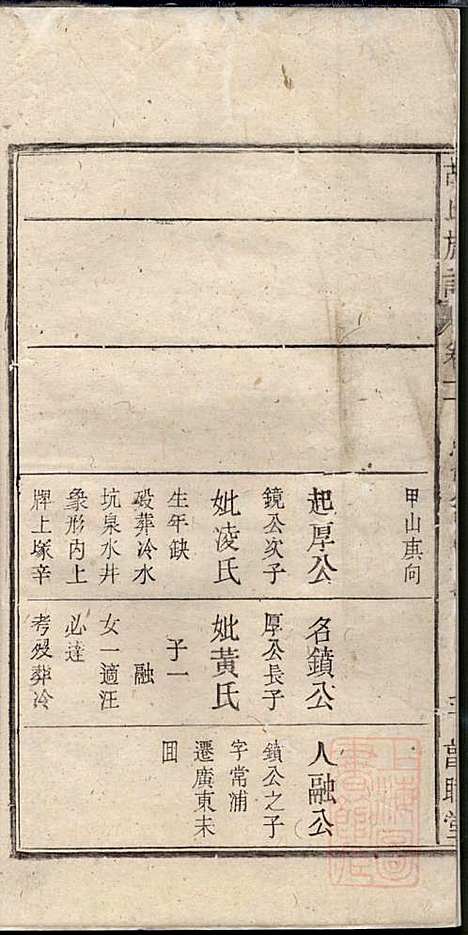 甲山庚向
起厚公
鏡公次子
妣凌氏
生年缺
殁葬冷水
坑泉水井
象形内上
牌上塚辛
名鎮公
厚公長子
妣黃氏
子一
融
女一適汪
必達
考殁葬冷
人融公
鎮公之子
字常浦
遷廣東未
囬